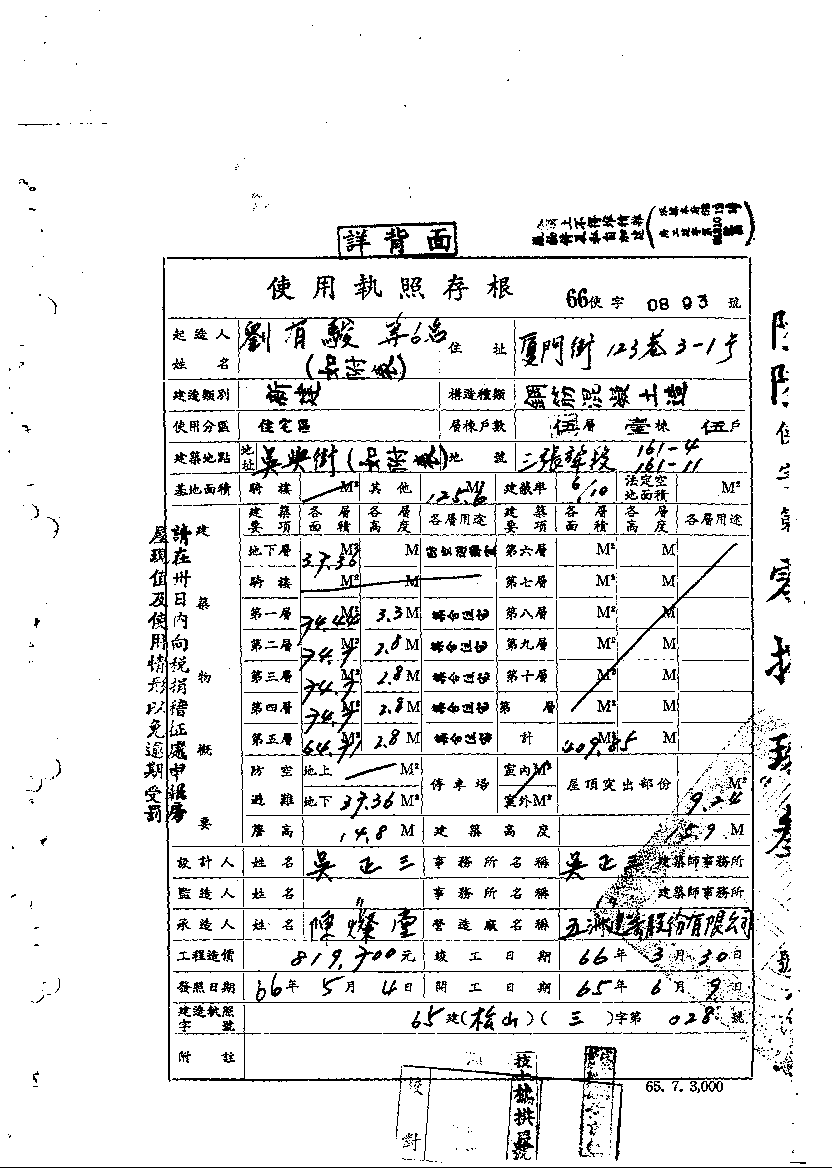 詳背面
使用執照存根
66使字 0893 號
起造人姓名 劉有駿 等6名 住址 厦門街123巷3-1号
建造類別 新建 構造種類 鋼筋混凝土造
使用分區 住宅區 層棟戶數 伍層 壹棟 伍戶
建築地點 地址 吳興街 地號 三張犂段 161-4 161-11
基地面積 騎樓 M² 其他 125.6 M² 建蔽率 6/10 法定空地面積 M²
建築物概要
建築要項 各層面積 各層高度 各層用途 建築要項 各層面積 各層高度 各層用途
地下層 37.36 M² M 第六層 M² M
騎樓 M² M 第七層 M² M
第一層 74.44 M² 3.3 M 集合住宅 第八層 M² M
第二層 74.7 M² 2.8 M 集合住宅 第九層 M² M
第三層 74.7 M² 2.8 M 集合住宅 第十層 M² M
第四層 74.7 M² 2.8 M 集合住宅 第 層 M² M
第五層 M² 2.8 M 集合住宅 計 409.85 M² M
防空避難 地上 M² 地下 37.36 M² 停車場 室內 M² 室外 M² 屋頂突出部份 9.24 M²
簷高 14.8 M 建築高度 15.9 M
設計人 姓名 吳正三 事務所名稱 吳正三 建築師事務所
監造人 姓名 〃 事務所名稱 〃 建築師事務所
承造人 姓名 陳燦堂 營造廠名稱 五洲建設股份有限公司
工程造價 819,700元 竣工日期 66年3月30日
發照日期 66年5月4日 開工日期 65年6月9日
建造執照字號 65建(松山)(三)字第028號
附註
65. 7. 3,000
請在卅日內向稅捐稽征處申報房
屋現值及使用情形以免逾期受罰
校對